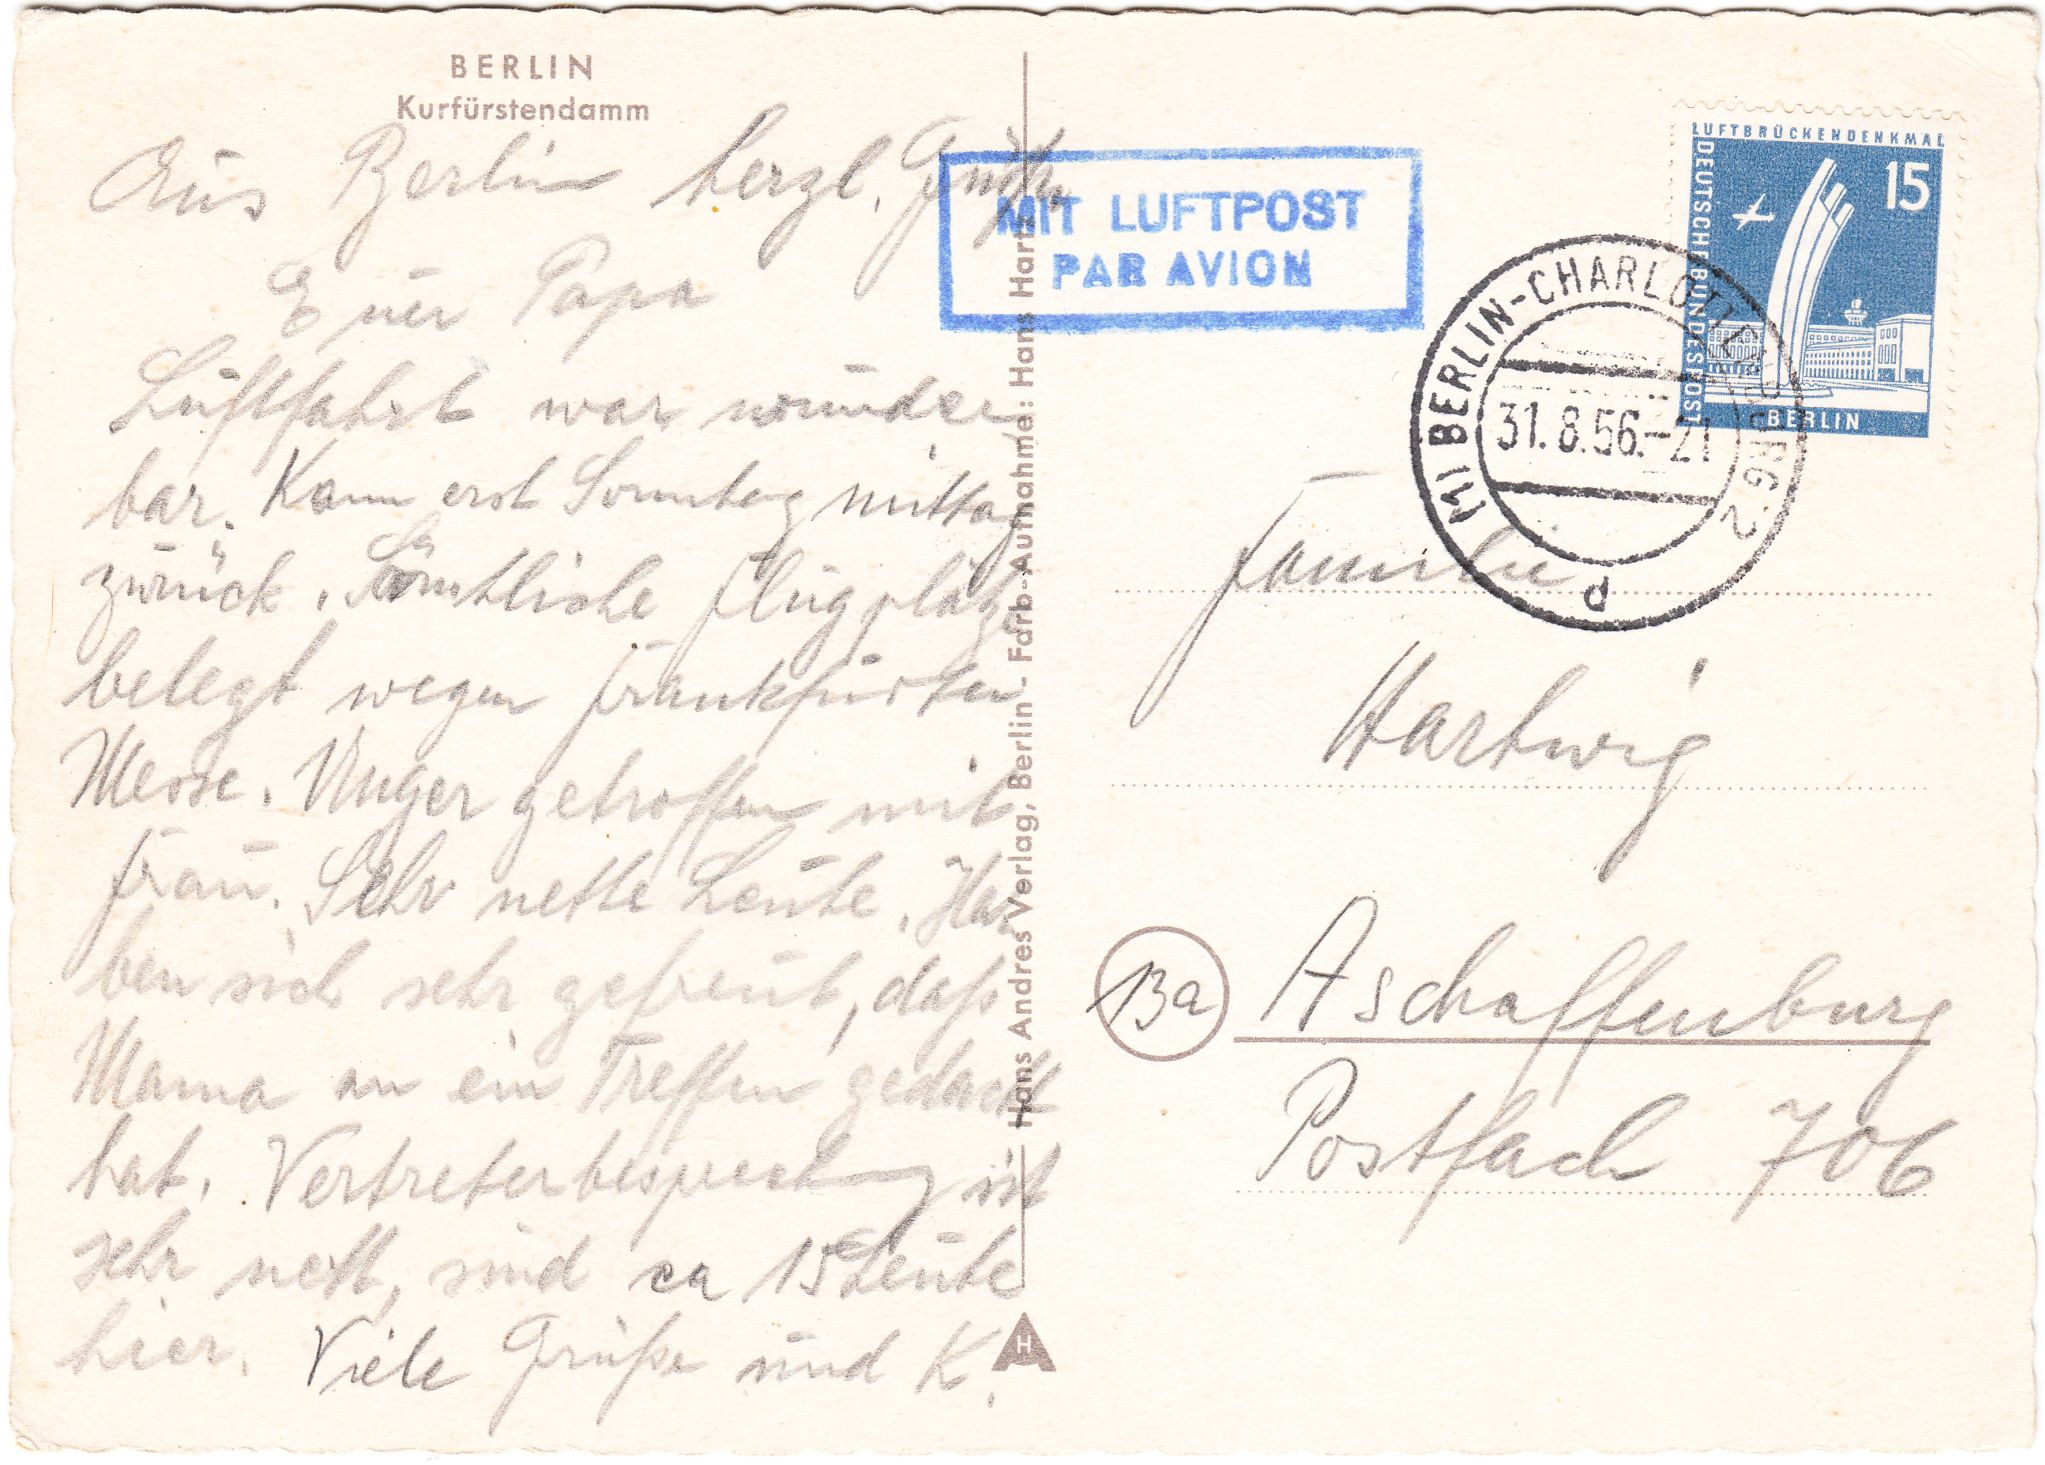 BERLIN
Kurfürstendamm
Aus Berlin herzl. Grüße
Euer Papa
Luftfahrt war wunder
bar. Kann erst Sonntag mittag
zurück. Sämtliche Flugplätze
belegt wegen Frankfurter
Messe. Unger getroffen mit
Frau. Sehr nette Leute. Ha-
ben sich sehr gefreut, daß
Mama an ein Treffen gedacht
hat. Vertreterbesprechung ist
sehr nett, sind ca 15 Leute
hier. Viele Grüße und K.
Hans Andres Verlag, Berlin - Farb-Aufnahme: Hans Hartz
H
MIT LUFTPOST
PAR AVION
LUFTBRÜCKENDENKMAL
DEUTSCHE BUNDESPOST
15
BERLIN
(1) BERLIN-CHARLOTTENBURG 2
31.8.56.-21
d
Familie
Hartwig
13a
Aschaffenburg
Postfach 706